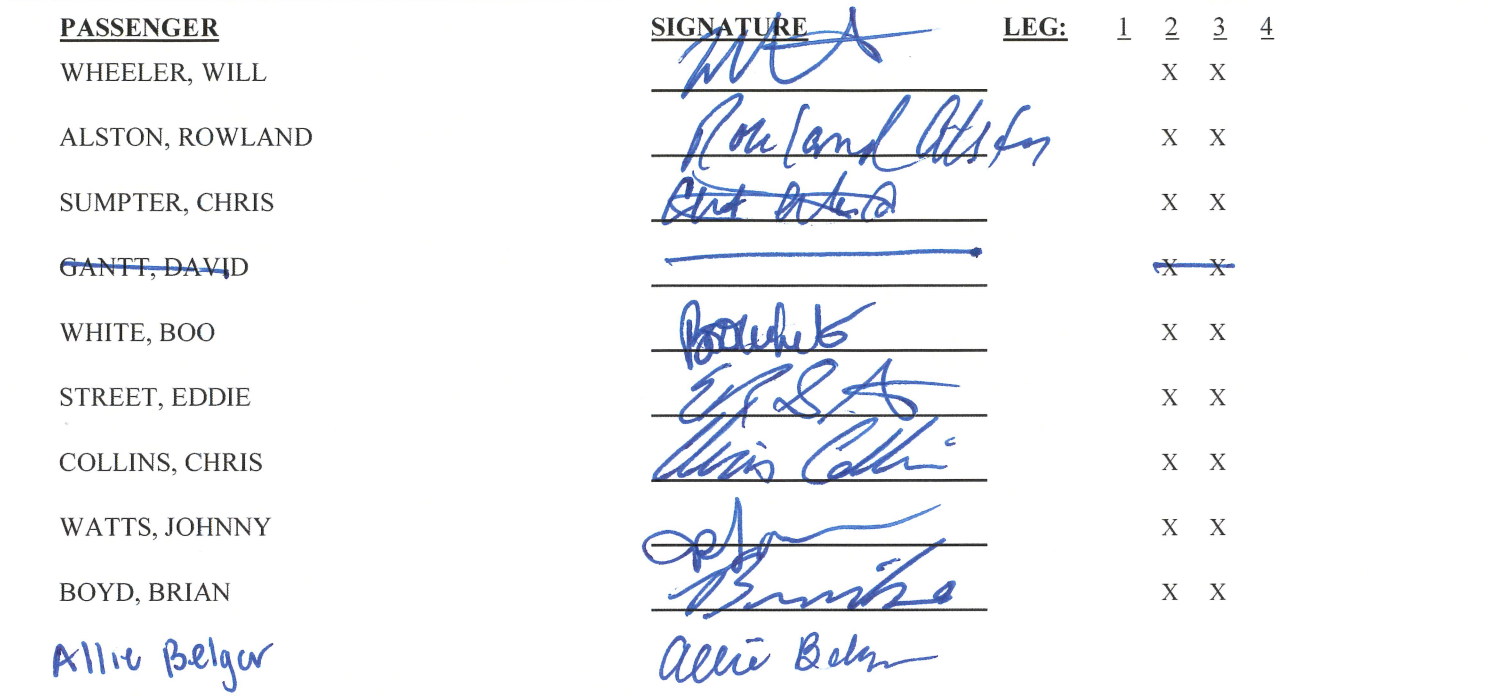 PASSENGER SIGNATURE LEG: 1 2 3 4
WHEELER, WILL X X
ALSTON, ROWLAND Rowland Alston X X
SUMPTER, CHRIS X X
GANTT, DAVID X X
WHITE, BOO Boo White X X
STREET, EDDIE X X
COLLINS, CHRIS Chris Collins X X
WATTS, JOHNNY X X
BOYD, BRIAN X X
Allie Belger Allie Belger